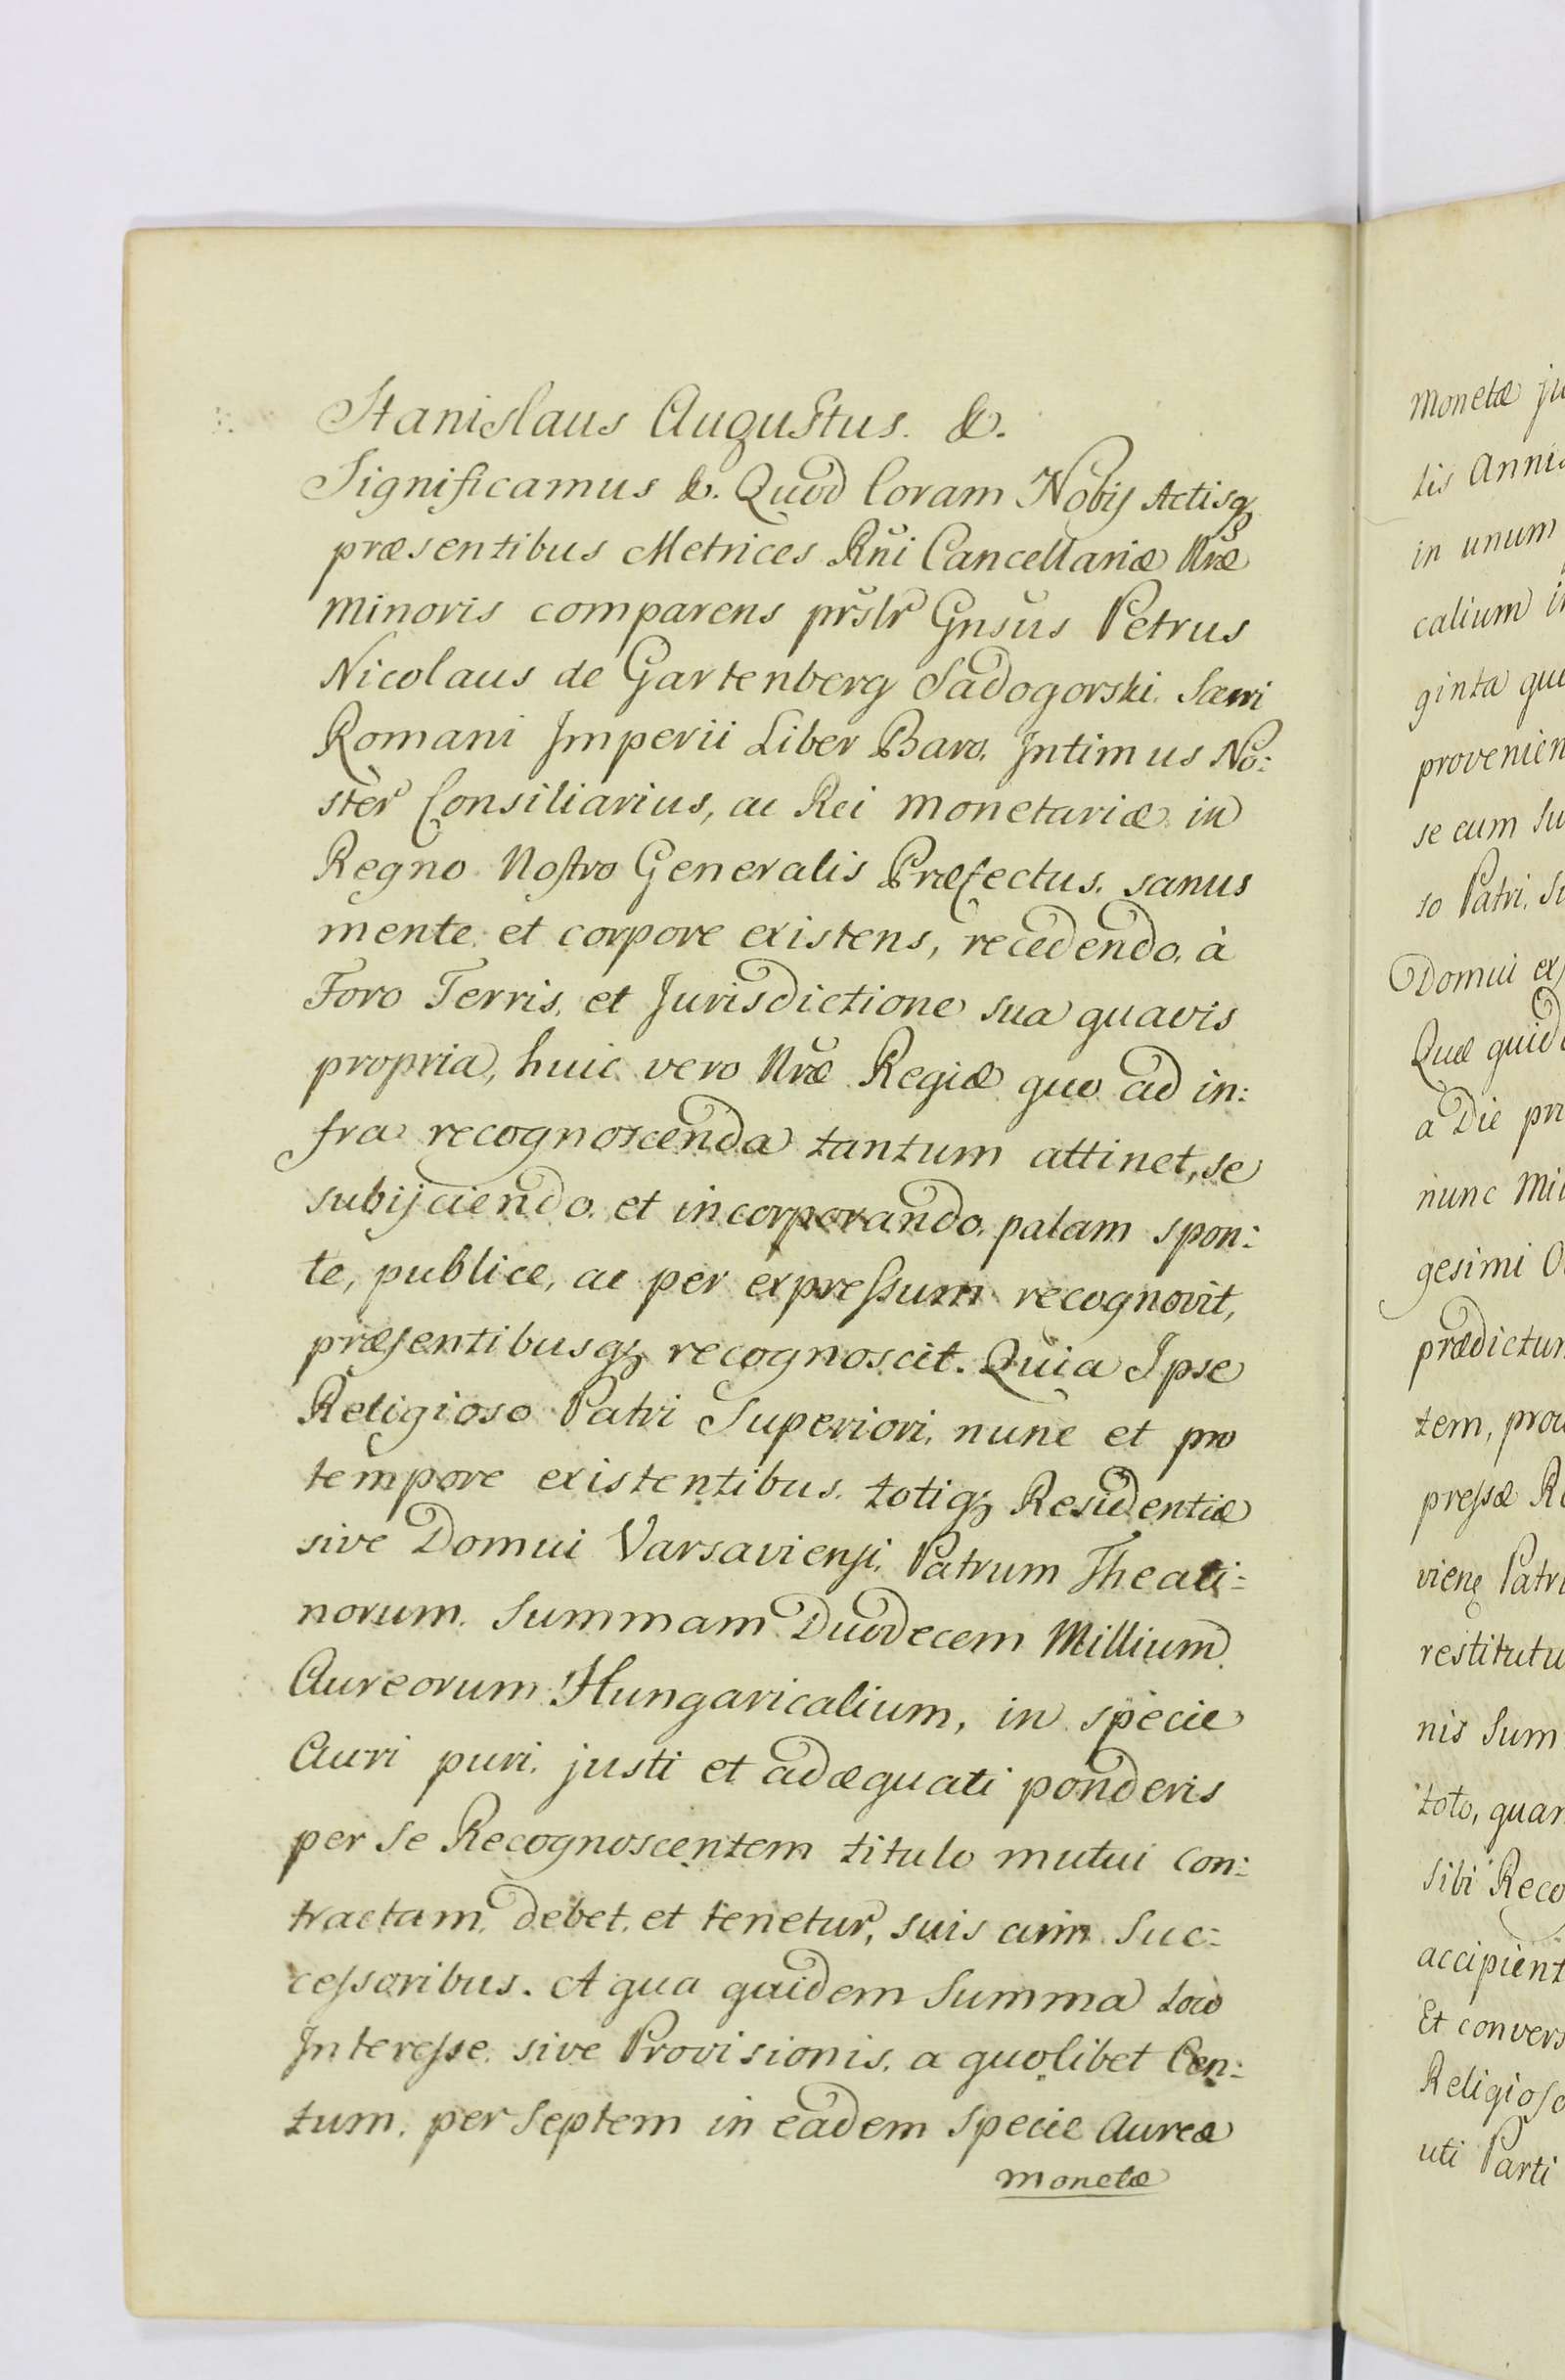 Stanislaus Augustus. &.
Significamus &. Quod Coram Nobis Actisq
præsentibus Metrices Rñi Cancellariæ Nræ
minoris comparens prslr Gnsus Petrus
Nicolaus de Gartenberg Sadogorski. Sacri
Romani Imperii Liber Baro. Intimus No:
ster Consiliarius, ac Rei monetariæ in
Regno Nostro Generalis Præfectus. sanus
mente et corpore existens, recedendo. à
Foro Terris, et Jurisdictione sua quavis
propria, huic vero Nræ Regiæ quo ad in:
fra recognoscenda tantum attinet, se
subijciendo. et incorporando. palam spon:
te, publice, ac per expressum recognovit,
præsentibusq recognoscit. Quia Ipse
Religioso Patri Superiori, nunc et pro
tempore existentibus. totiq Residentiæ
sive Domui Varsaviensi. Patrum Theati:
norum. Summam Duodecem Millium
Aureorum Hungaricalium, in specie
Auri puri, justi et adæquati ponderis
per se Recognoscentem titulo mutui con:
tractam, debet, et tenetur, suis cum Suc:
cessoribus. A qua quidem Summa Loco
Interesse. sive Provisionis. a quolibet Cen:
tum, per Septem in eadem specie Aureæ
monetæ
monetæ ju
tis Anni
in unum
calium i
ginta qu
provenien
se cum su
so Patri, Su
Domui ex
Quæ quid
a Die pr
nunc Mil
gesimi O
prædictu
tem, pro
pressæ R
viens Patr
restitutu
nis Sum
toto, quan
Sibi Reco
accipient
Et convers
Religioso
uti Parti